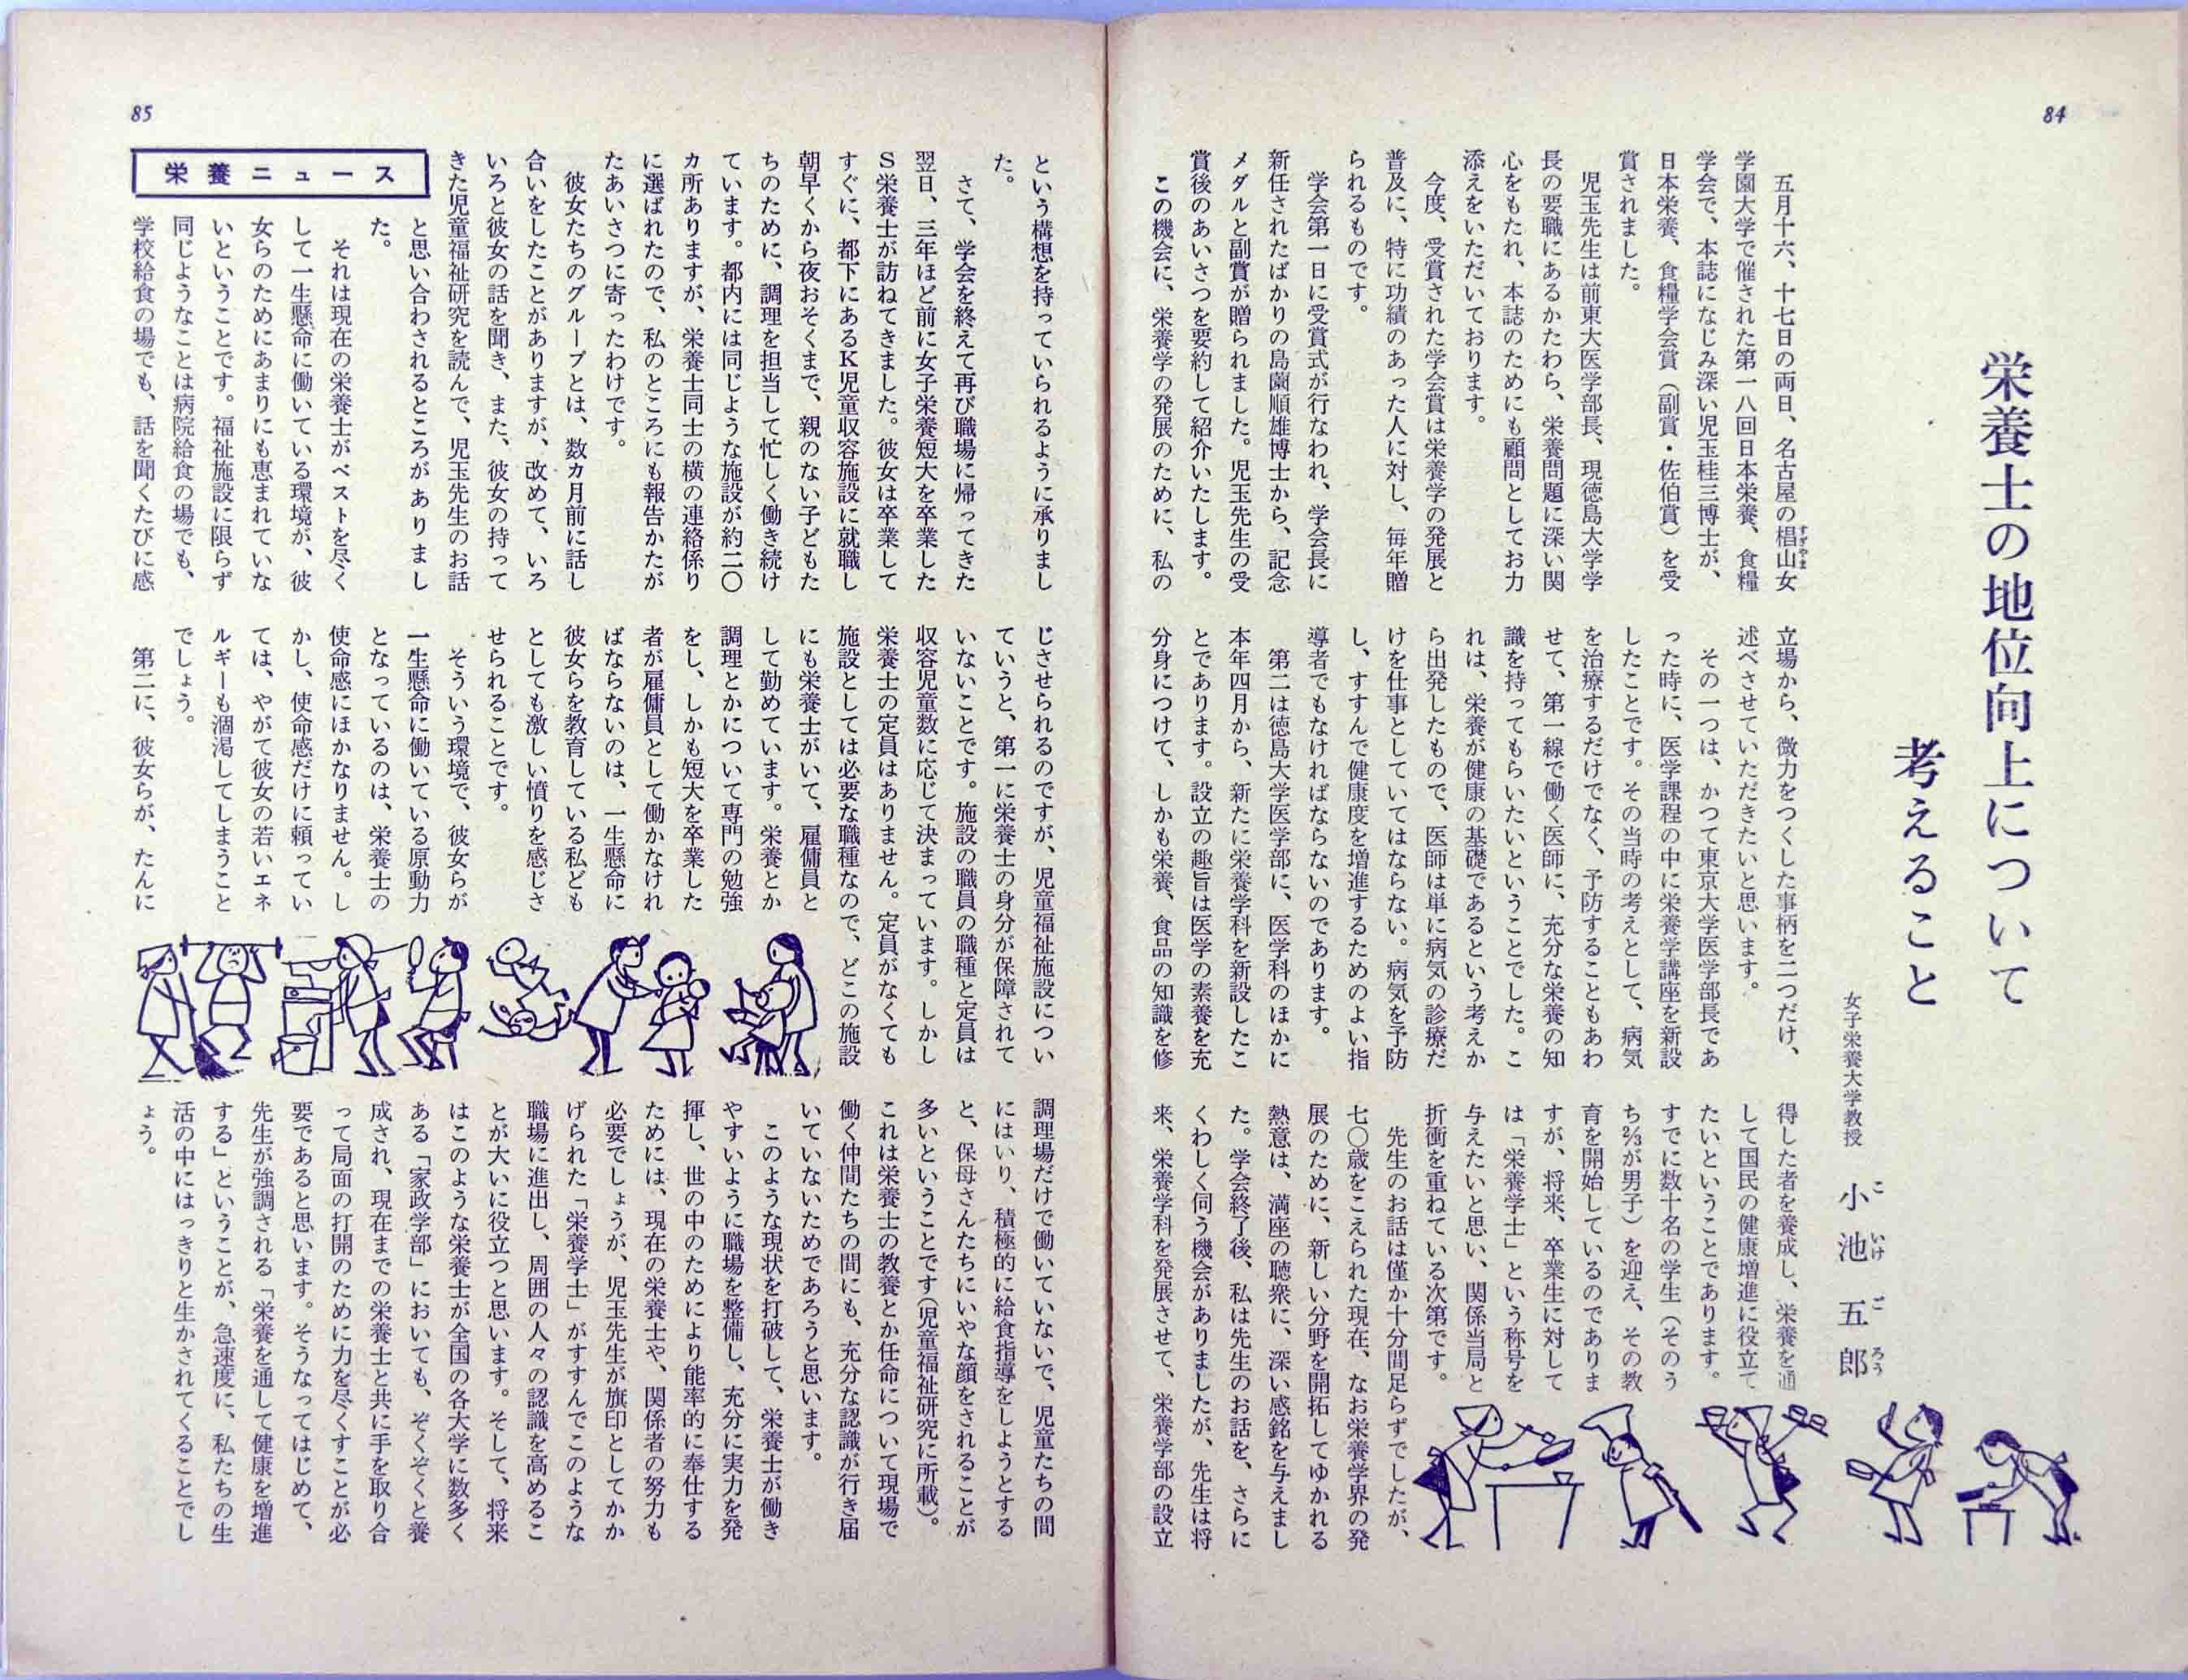 84
栄養士の地位向上について
考えること
女子栄養大学教授　小池五郎
こいけごろう
五月十六、十七日の両日、名古屋の椙山女
すぎやま
学園大学で催された第一八回日本栄養、食糧
学会で、本誌になじみ深い児玉桂三博士が、
日本栄養、食糧学会賞（副賞・佐伯賞）を受
賞されました。
児玉先生は前東大医学部長、現徳島大学学
長の要職にあるかたわら、栄養問題に深い関
心をもたれ、本誌のためにも顧問としてお力
添えをいただいております。
今度、受賞された学会賞は栄養学の発展と
普及に、特に功績のあった人に対し、毎年贈
られるものです。
学会第一日に受賞式が行なわれ、学会長に
新任されたばかりの島薗順雄博士から、記念
メダルと副賞が贈られました。児玉先生の受
賞後のあいさつを要約して紹介いたします。
この機会に、栄養学の発展のために、私の
立場から、微力をつくした事柄を二つだけ、
述べさせていただきたいと思います。
その一つは、かつて東京大学医学部長であ
った時に、医学課程の中に栄養学講座を新設
したことです。その当時の考えとして、病気
を治療するだけでなく、予防することもあわ
せて、第一線で働く医師に、充分な栄養の知
識を持ってもらいたいということでした。こ
れは、栄養が健康の基礎であるという考えか
ら出発したもので、医師は単に病気の診療だ
けを仕事としていてはならない。病気を予防
し、すすんで健康度を増進するためのよい指
導者でもなければならないのであります。
第二は徳島大学医学部に、医学科のほかに
本年四月から、新たに栄養学科を新設したこ
とであります。設立の趣旨は医学の素養を充
分身につけて、しかも栄養、食品の知識を修
得した者を養成し、栄養を通
して国民の健康増進に役立て
たいということであります。
すでに数十名の学生（そのう
ち⅔が男子）を迎え、その教
育を開始しているのでありま
すが、将来、卒業生に対して
は「栄養学士」という称号を
与えたいと思い、関係当局と
折衝を重ねている次第です。
先生のお話は僅か十分間足らずでしたが、
七〇歳をこえられた現在、なお栄養学界の発
展のために、新しい分野を開拓してゆかれる
熱意は、満座の聴衆に、深い感銘を与えまし
た。学会終了後、私は先生のお話を、さらに
くわしく伺う機会がありましたが、先生は将
来、栄養学科を発展させて、栄養学部の設立
85
という構想を持っていられるように承りまし
た。
さて、学会を終えて再び職場に帰ってきた
翌日、三年ほど前に女子栄養短大を卒業した
S栄養士が訪ねてきました。彼女は卒業して
すぐに、都下にあるK児童収容施設に就職し
朝早くから夜おそくまで、親のない子どもた
ちのために、調理を担当して忙しく働き続け
ています。都内には同じような施設が約二〇
カ所ありますが、栄養士同士の横の連絡係り
に選ばれたので、私のところにも報告かたが
たあいさつに寄ったわけです。
彼女たちのグループとは、数カ月前に話し
合いをしたことがありますが、改めて、いろ
いろと彼女の話を聞き、また、彼女の持って
きた児童福祉研究を読んで、児玉先生のお話
と思い合わされるところがありまし
た。
それは現在の栄養士がベストを尽く
して一生懸命に働いている環境が、彼
女らのためにあまりにも恵まれていな
いということです。福祉施設に限らず
同じようなことは病院給食の場でも、
学校給食の場でも、話を聞くたびに感
栄養ニュース
じさせられるのですが、児童福祉施設につい
ていうと、第一に栄養士の身分が保障されて
いないことです。施設の職員の職種と定員は
収容児童数に応じて決まっています。しかし
栄養士の定員はありません。定員がなくても
施設としては必要な職種なので、どこの施設
にも栄養士がいて、雇傭員と
して勤めています。栄養とか
調理とかについて専門の勉強
をし、しかも短大を卒業した
者が雇傭員として働かなけれ
ばならないのは、一生懸命に
彼女らを教育している私ども
としても激しい憤りを感じさ
せられることです。
そういう環境で、彼女らが
一生懸命に働いている原動力
となっているのは、栄養士の
使命感にほかなりません。し
かし、使命感だけに頼ってい
ては、やがて彼女の若いエネ
ルギーも涸渇してしまうこと
でしょう。
第二に、彼女らが、たんに
調理場だけで働いていないで、児童たちの間
にはいり、積極的に給食指導をしようとする
と、保母さんたちにいやな顔をされることが
多いということです（児童福祉研究に所載）。
これは栄養士の教養とか任命について現場で
働く仲間たちの間にも、充分な認識が行き届
いていないためであろうと思います。
このような現状を打破して、栄養士が働き
やすいように職場を整備し、充分に実力を発
揮し、世の中のためにより能率的に奉仕する
ためには、現在の栄養士や、関係者の努力も
必要でしょうが、児玉先生が旗印としてかか
げられた「栄養学士」がすすんでこのような
職場に進出し、周囲の人々の認識を高めるこ
とが大いに役立つと思います。そして、将来
はこのような栄養士が全国の各大学に数多く
ある「家政学部」においても、ぞくぞくと養
成され、現在までの栄養士と共に手を取り合
って局面の打開のために力を尽くすことが必
要であると思います。そうなってはじめて、
先生が強調される「栄養を通して健康を増進
する」ということが、急速度に、私たちの生
活の中にはっきりと生かされてくることでし
ょう。